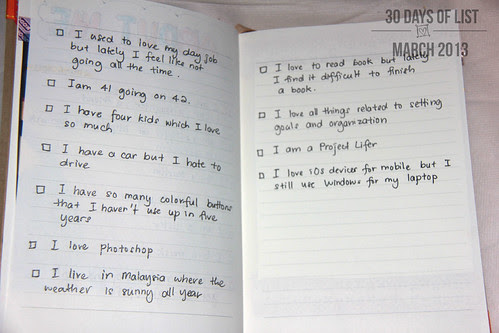 30 DAYS OF LIST
MARCH 2013
I used to love my day job
but lately I feel like not
going all the time.
I am 41 going on 42.
I have four kids which I love
so much
I have a car but I hate to
drive
I have so many colorful buttons
that I haven't use up in five
years
I love photoshop
I live in malaysia where the
weather is sunny all year
I love to read book but lately
I find it difficult to finish
a book.
I love all things related to setting
goals and organization
I am a Project Lifer
I love iOs devices for mobile but I
still use windows for my laptop